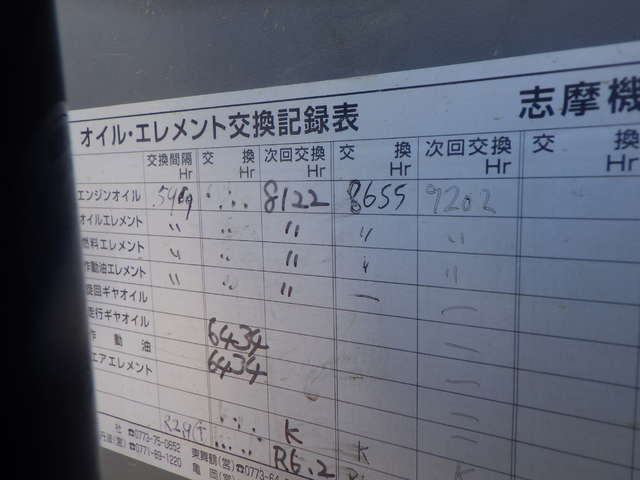 オイル・エレメント交換記録表 志摩機
交換間隔Hr 交換Hr 次回交換Hr 交換Hr 次回交換Hr 交換Hr
エンジンオイル 8122 8655 9202
オイルエレメント 〃 〃 〃 〃 〃
燃料エレメント 〃 〃 〃 〃 〃
作動油エレメント 〃 〃 〃 〃 〃
旋回ギヤオイル
走行ギヤオイル
作動油 6434
エアエレメント 6434
K
社 ☎0773-75-0652 R6.2 K
(営) ☎0771-89-1220 東舞鶴(営) ☎0773-64
亀岡(営) K